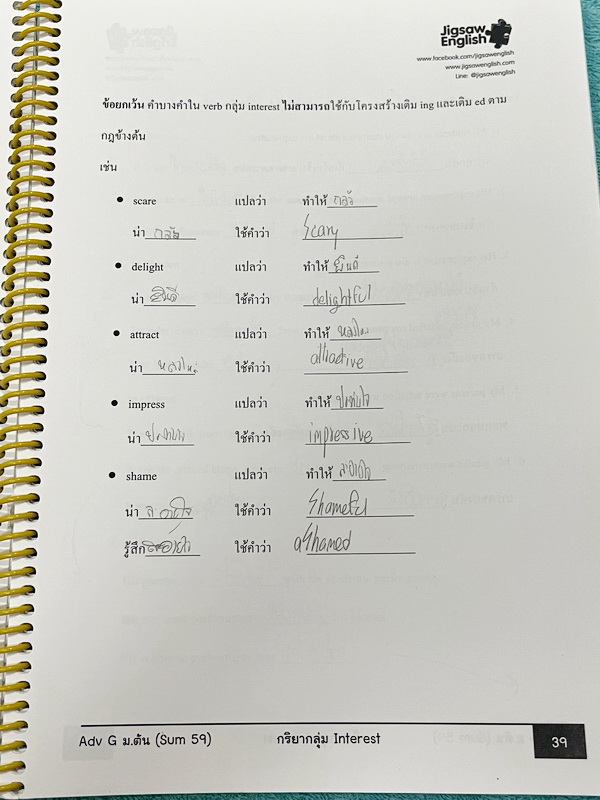 Jigsaw
English
www.facebook.com/jigsawenglish
www.jigsawenglish.com
Line: @jigsawenglish
ข้อยกเว้น คำบางคำใน verb กลุ่ม interest ไม่สามารถใช้กับโครงสร้างเติม ing และเติม ed ตาม
กฎข้างต้น
เช่น
• scare แปลว่า ทำให้ กลัว
น่า กลัว ใช้คำว่า Scary
• delight แปลว่า ทำให้ ยินดี
น่า ยินดี ใช้คำว่า delightful
• attract แปลว่า ทำให้ หลงใหล
น่า หลงใหล ใช้คำว่า attractive
• impress แปลว่า ทำให้ ประทับใจ
น่า ใช้คำว่า impressive
• shame แปลว่า ทำให้
น่า ละอายใจ ใช้คำว่า Shameful
รู้สึก ใช้คำว่า aShamed
Adv G ม.ต้น (Sum 59) กริยากลุ่ม Interest 39